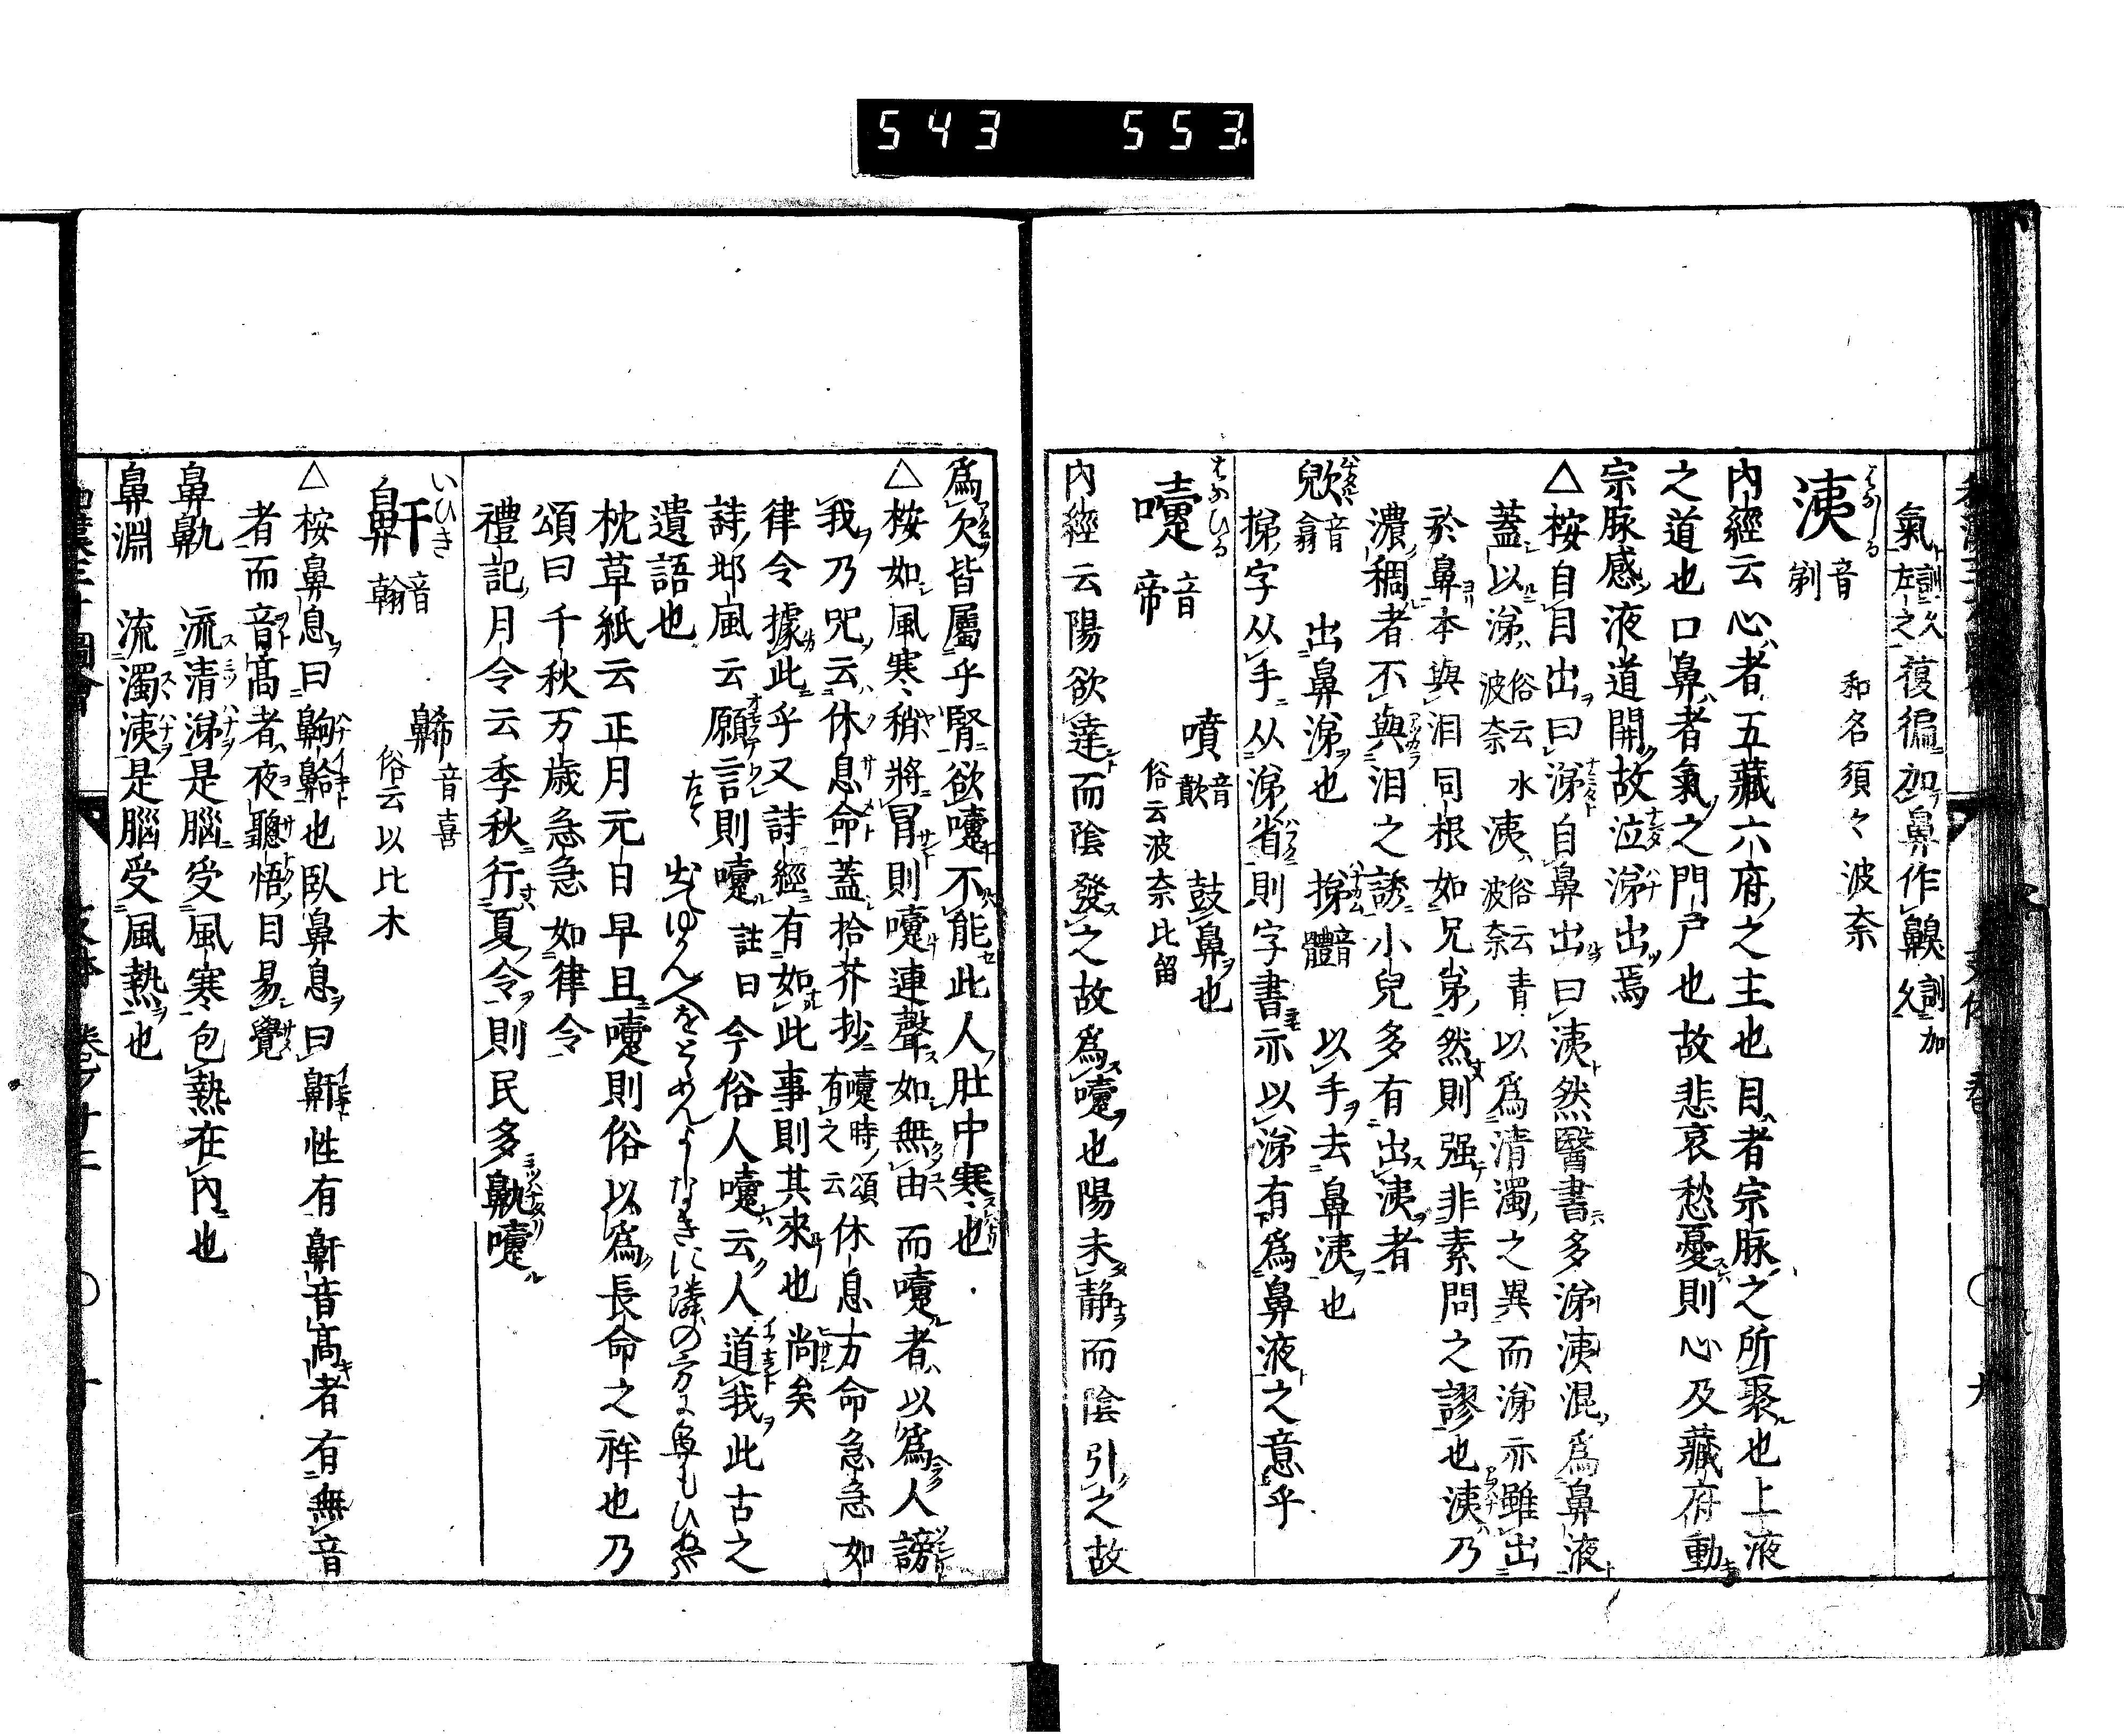 543 553
氣訓久左之復徧加鼻作齅訓加久
洟 音剃 和名須々波奈
はなしる
内經云心者五藏六府之主也目者宗脉之所聚也上液
之道也口鼻者氣之門戸也故悲哀愁憂則心及藏府動
宗脉感液道開故泣涕出焉
△桉自目出曰涕自鼻出曰洟然醫書多涕洟混爲鼻液
蓋以涕俗云水波奈洟俗云青波奈以爲清濁之異而涕亦雖出
於鼻本與泪同根如兄弟然則强非素問之謬也洟乃
濃稠者不與泪之誘小兒多有出洟者
音翕 出鼻涕也 㨹音體 以手去鼻洟也
㨹字从手从涕省則字書亦以涕有爲鼻液之意乎
嚔 音帝 噴音歕 鼓鼻也 俗云波奈比留
はなひる
内經云陽欲達而陰發之故爲嚔也陽未静而陰引之故
爲欠皆屬乎腎欲嚔不能此人肚中寒也
△桉如風寒稍將冒則嚔連聲如無由而嚔者以爲人謗
我乃呪云休息命蓋拾芥抄嚔時頌有之云休息万命急急如
律令據此乎又詩經有如此事則其來也尚矣
詩邶風云願言則嚔註曰今俗人嚔云人道我此古之
遺語也
枕草紙云正月元日早旦嚔則俗以爲長命之祥也乃
頌曰千秋万歳急急如律令
禮記月令云季秋行夏令則民多鼽嚔
鼾 音翰 俗云以比木
いひき
音喜
△桉鼻息曰齁𪖙也臥鼻息曰鼾性有鼾音髙者有無音
者而音髙者夜聽悟目易覺
鼻鼽 流清涕是腦受風寒包熱在内也
鼻淵 流濁洟是腦受風熱也